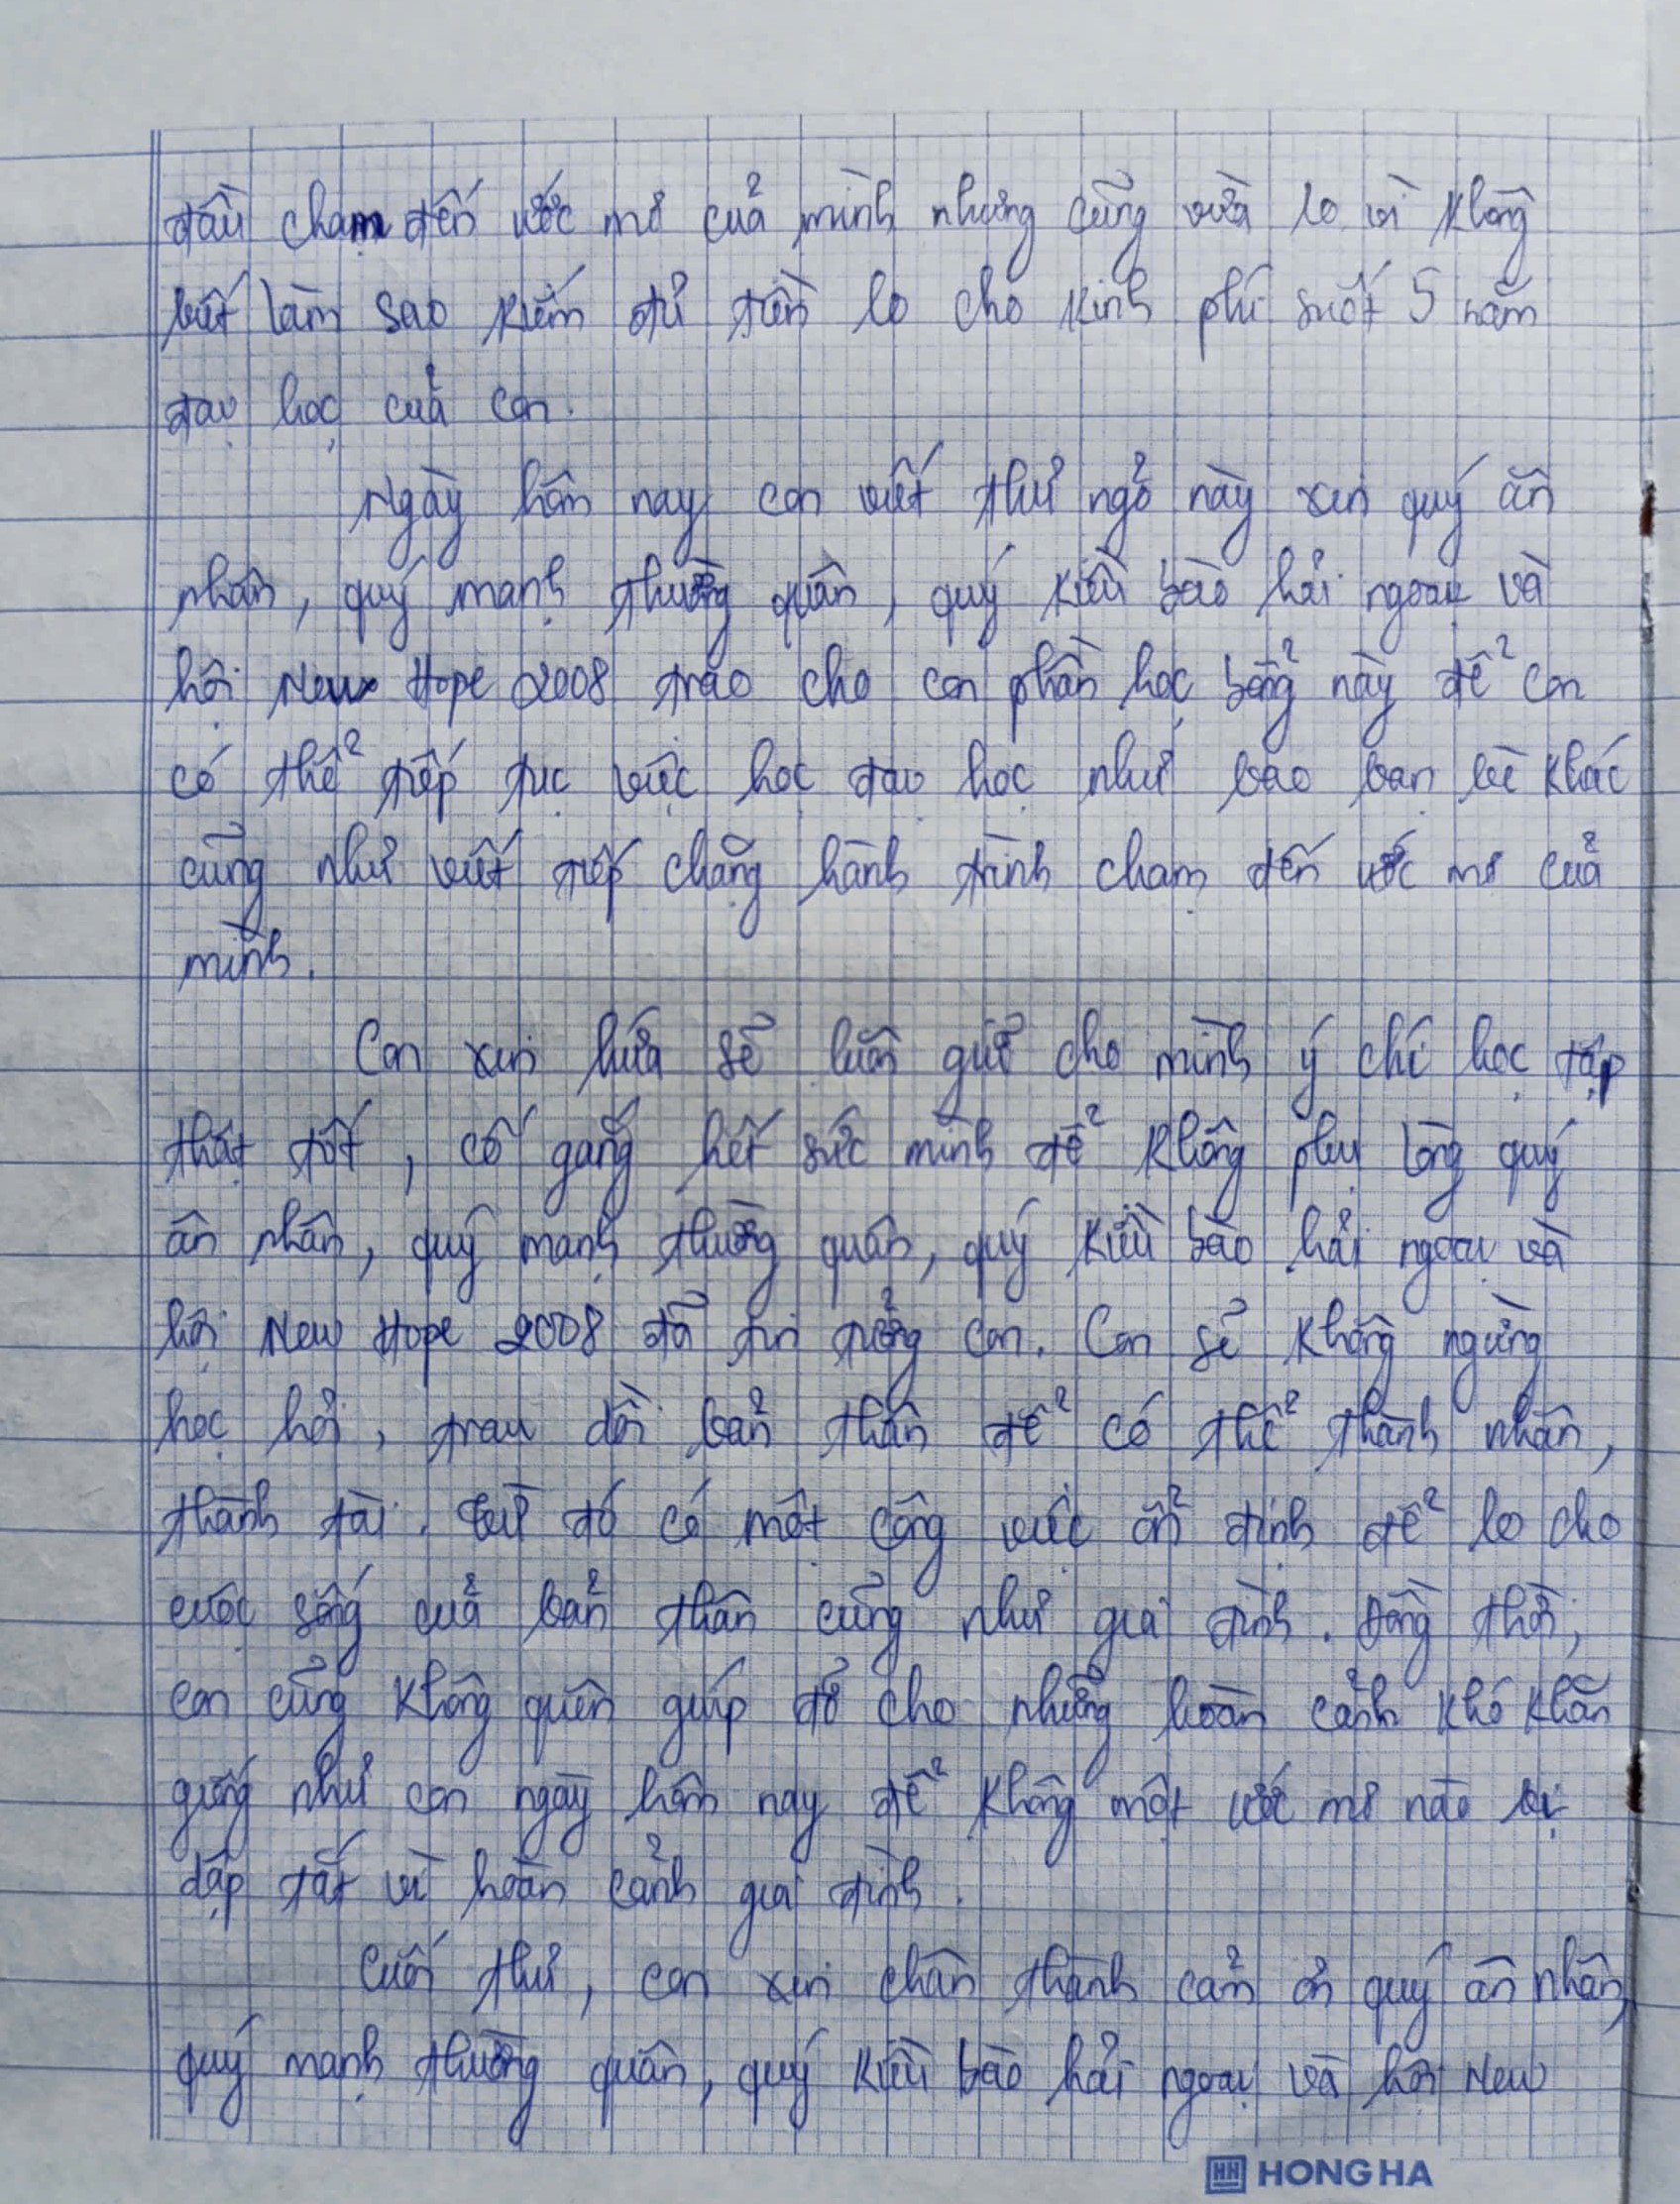 đầu chạm đến ước mơ của mình nhưng cũng vừa lo vì không
biết làm sao kiếm đủ tiền lo cho kinh phí suốt 5 năm
đại học của con.
Ngày hôm nay con viết thư ngỏ này xin quý ân
nhân, quý mạnh thường quân, quý kiều bào hải ngoại và
hội New Hope 2008 trao cho con phần học bổng này để con
có thể tiếp tục việc học đại học như bao bạn bè khác
cũng như viết tiếp chặng hành trình chạm đến ước mơ của
mình.
Con xin hứa sẽ luôn giữ cho mình ý chí học tập
thật tốt, cố gắng hết sức mình để không phụ lòng quý
ân nhân, quý mạnh thường quân, quý kiều bào hải ngoại và
hội New Hope 2008 đã tin tưởng con. Con sẽ không ngừng
học hỏi, trau dồi bản thân để có thể thành nhân,
thành tài. Từ đó có một công việc ổn định để lo cho
cuộc sống của bản thân cũng như gia đình. Đồng thời,
con cũng không quên giúp đỡ cho những hoàn cảnh khó khăn
giống như con ngày hôm nay để không một ước mơ nào bị
dập tắt vì hoàn cảnh gia đình.
Cuối thư, con xin chân thành cảm ơn quý ân nhân,
quý mạnh thường quân, quý kiều bào hải ngoại và hội New
HH HONG HA